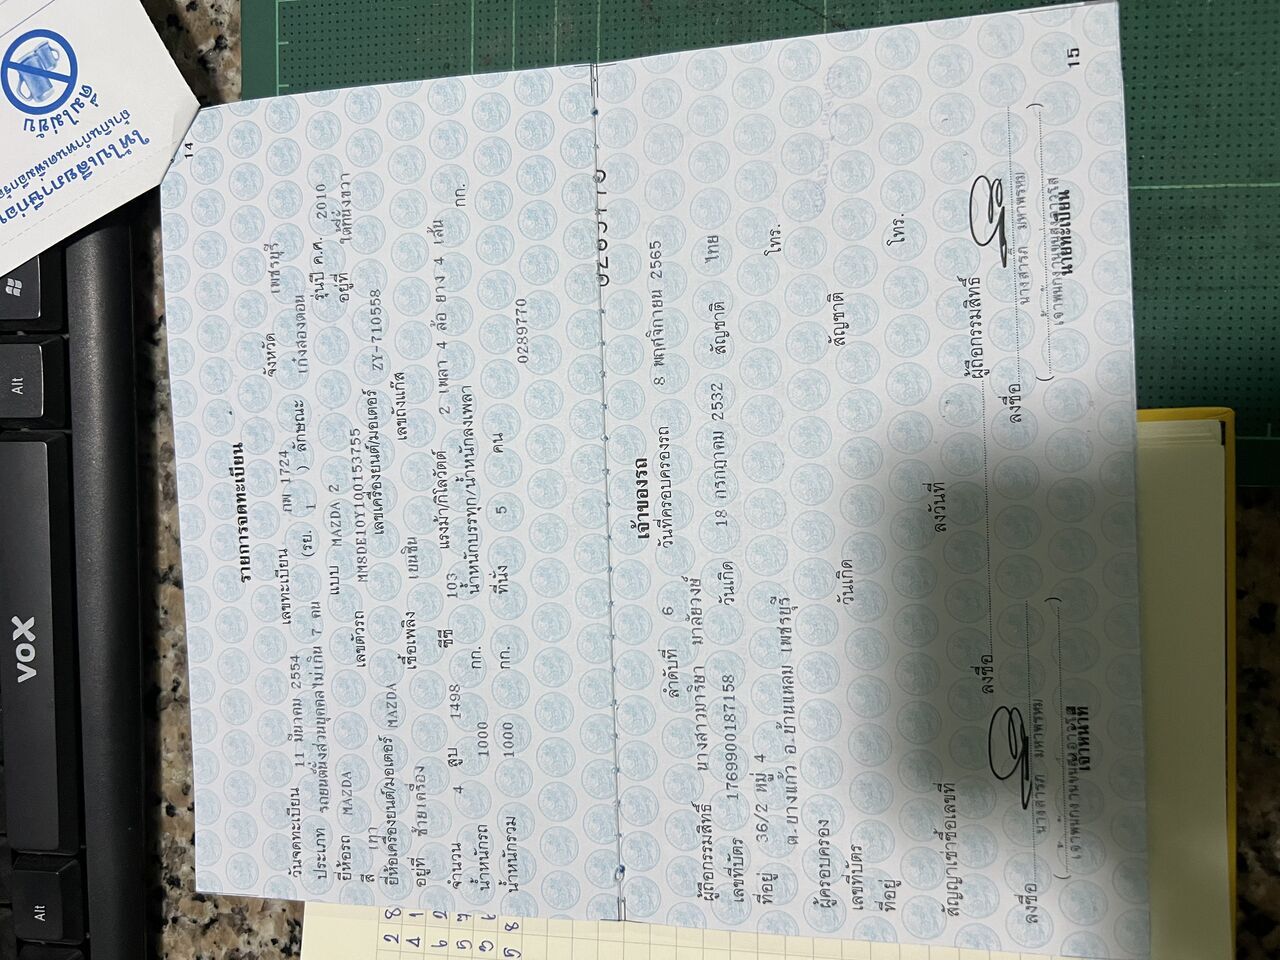 14
รายการจดทะเบียน
วันจดทะเบียน 11 มีนาคม 2554 เลขทะเบียน กพ 1724 จังหวัด เพชรบุรี
ประเภท รถยนต์นั่งส่วนบุคคลไม่เกิน 7 คน (รย. 1 ) ลักษณะ เก๋งสองตอน
ยี่ห้อรถ MAZDA แบบ MAZDA 2 รุ่นปี ค.ศ. 2010
สี เทา เลขตัวรถ MM8DE10Y100153755 อยู่ที่ ใต้ที่นั่งขวา
ยี่ห้อเครื่องยนต์/มอเตอร์ MAZDA เลขเครื่องยนต์/มอเตอร์ ZY-710558
อยู่ที่ ซ้ายเครื่อง เชื้อเพลิง เบนซิน เลขถังแก๊ส
จำนวน 4 สูบ 1498 ซีซี 103 แรงม้า/กิโลวัตต์ 2 เพลา 4 ล้อ ยาง 4 เส้น
น้ำหนักรถ 1000 กก. น้ำหนักบรรทุก/น้ำหนักลงเพลา กก.
น้ำหนักรวม 1000 กก. ที่นั่ง 5 คน 0289770
เจ้าของรถ
ลำดับที่ 6 วันที่ครอบครองรถ 8 พฤศจิกายน 2565
ผู้ถือกรรมสิทธิ์ นางสาวมาริษา มาลัยวงษ์
เลขที่บัตร 1769900187158 วันเกิด 18 กรกฎาคม 2532 สัญชาติ ไทย
ที่อยู่ 36/2 หมู่ 4 โทร.
ต.บางแก้ว อ.บ้านแหลม เพชรบุรี
ผู้ครอบครอง
เลขที่บัตร วันเกิด สัญชาติ
ที่อยู่ โทร.
สัญญาเช่าซื้อเลขที่ ลงวันที่
ลงชื่อ ผู้ถือกรรมสิทธิ์
ลงชื่อ ลงชื่อ
นางสารภี มหาพรหม นางสารภี มหาพรหม
เจ้าหน้าที่ นายทะเบียน
15
vox
Alt
Alt